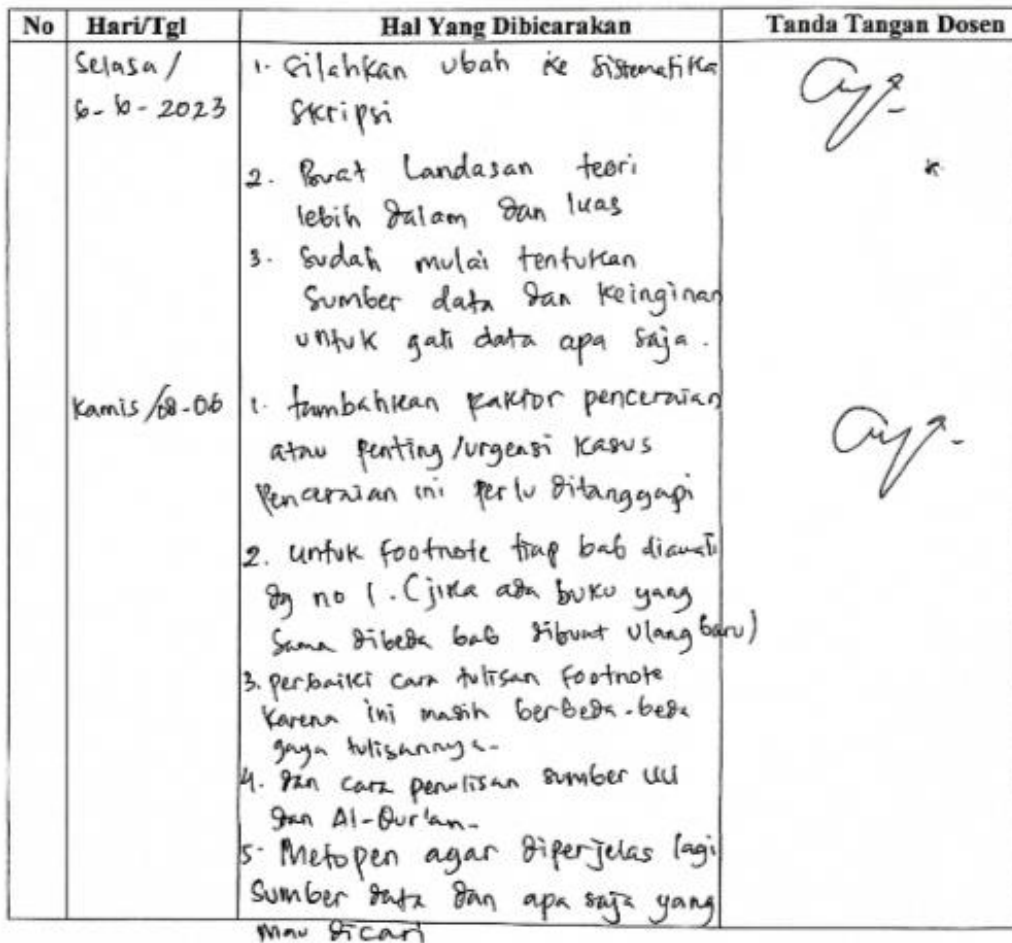 No Hari/Tgl Hal Yang Dibicarakan Tanda Tangan Dosen
Selasa / 1. Silahkan ubah ke Sistematika
6-6-2023 Skripsi
2. Buat Landasan teori
lebih dalam dan luas
3. Sudah mulai tentukan
Sumber data dan keinginan
untuk gali data apa saja.
Kamis /08-06 1. tambahkan Faktor penceraian
atau Penting /urgensi kasus
Penceraian ini perlu ditanggapi
2. untuk footnote tiap bab diawali
dg no 1. (jika ada buku yang
Sama dibeda bab dibuat ulang baru)
3. perbaiki cara tulisan footnote
karena ini masih berbeda-beda
gaya tulisannya-
4. dan cara penulisan sumber UU
dan Al-Qur'an-
5. Metopen agar diperjelas lagi
Sumber data dan apa saja yang
mau dicari